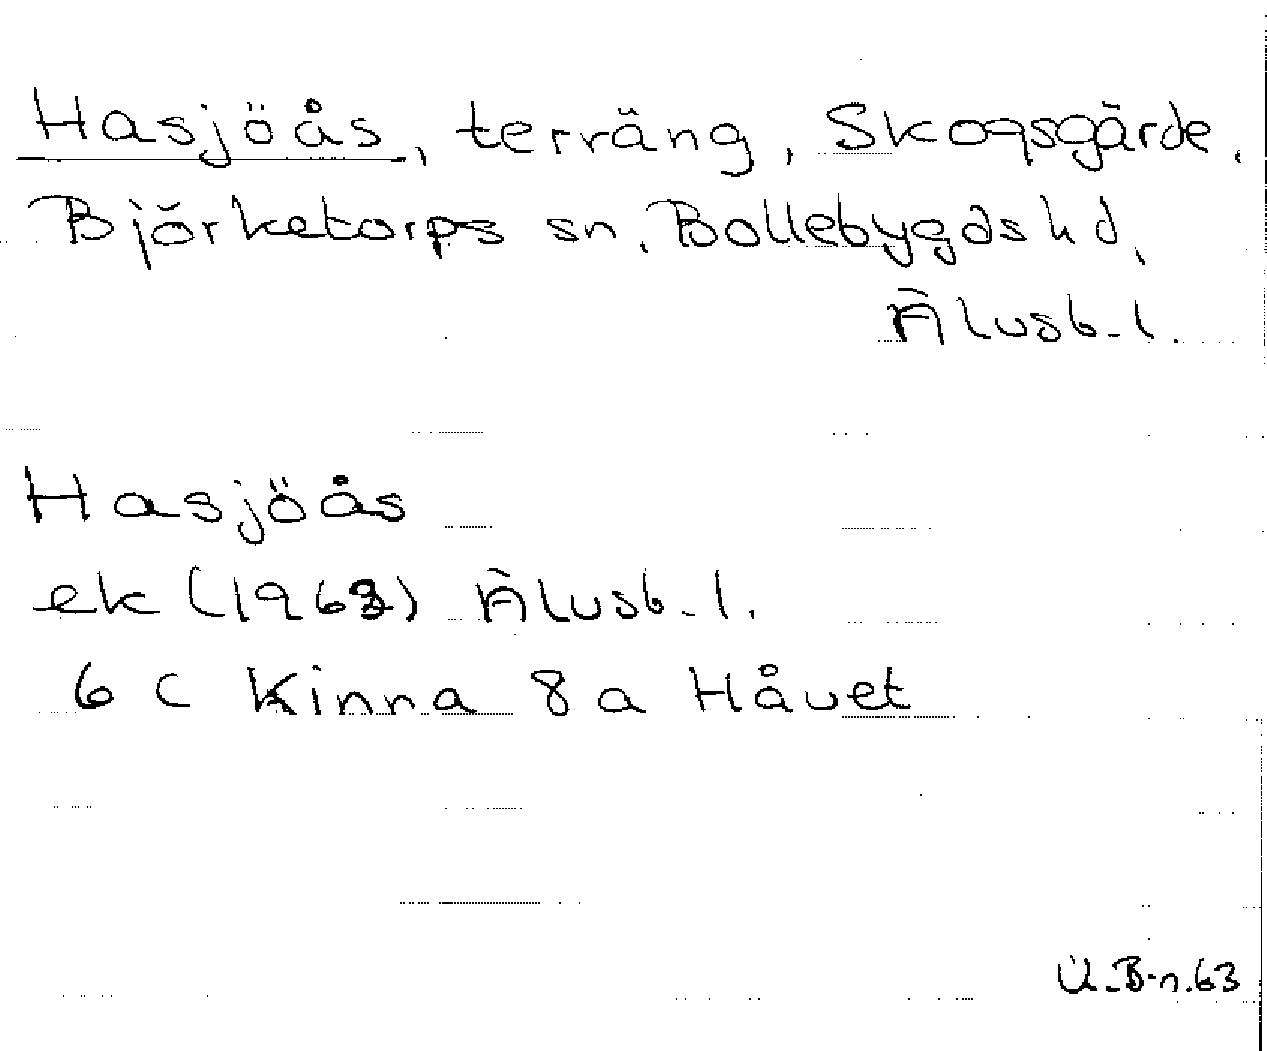 Hasjöås, terräng, Skogsgärde,
Björketorps sn, Bollebygds hd,
Älvsb. l.
Hasjöås
ek (1963) Älvsb. l.
6 C Kinna 8 a Håvet
U.B-n.63